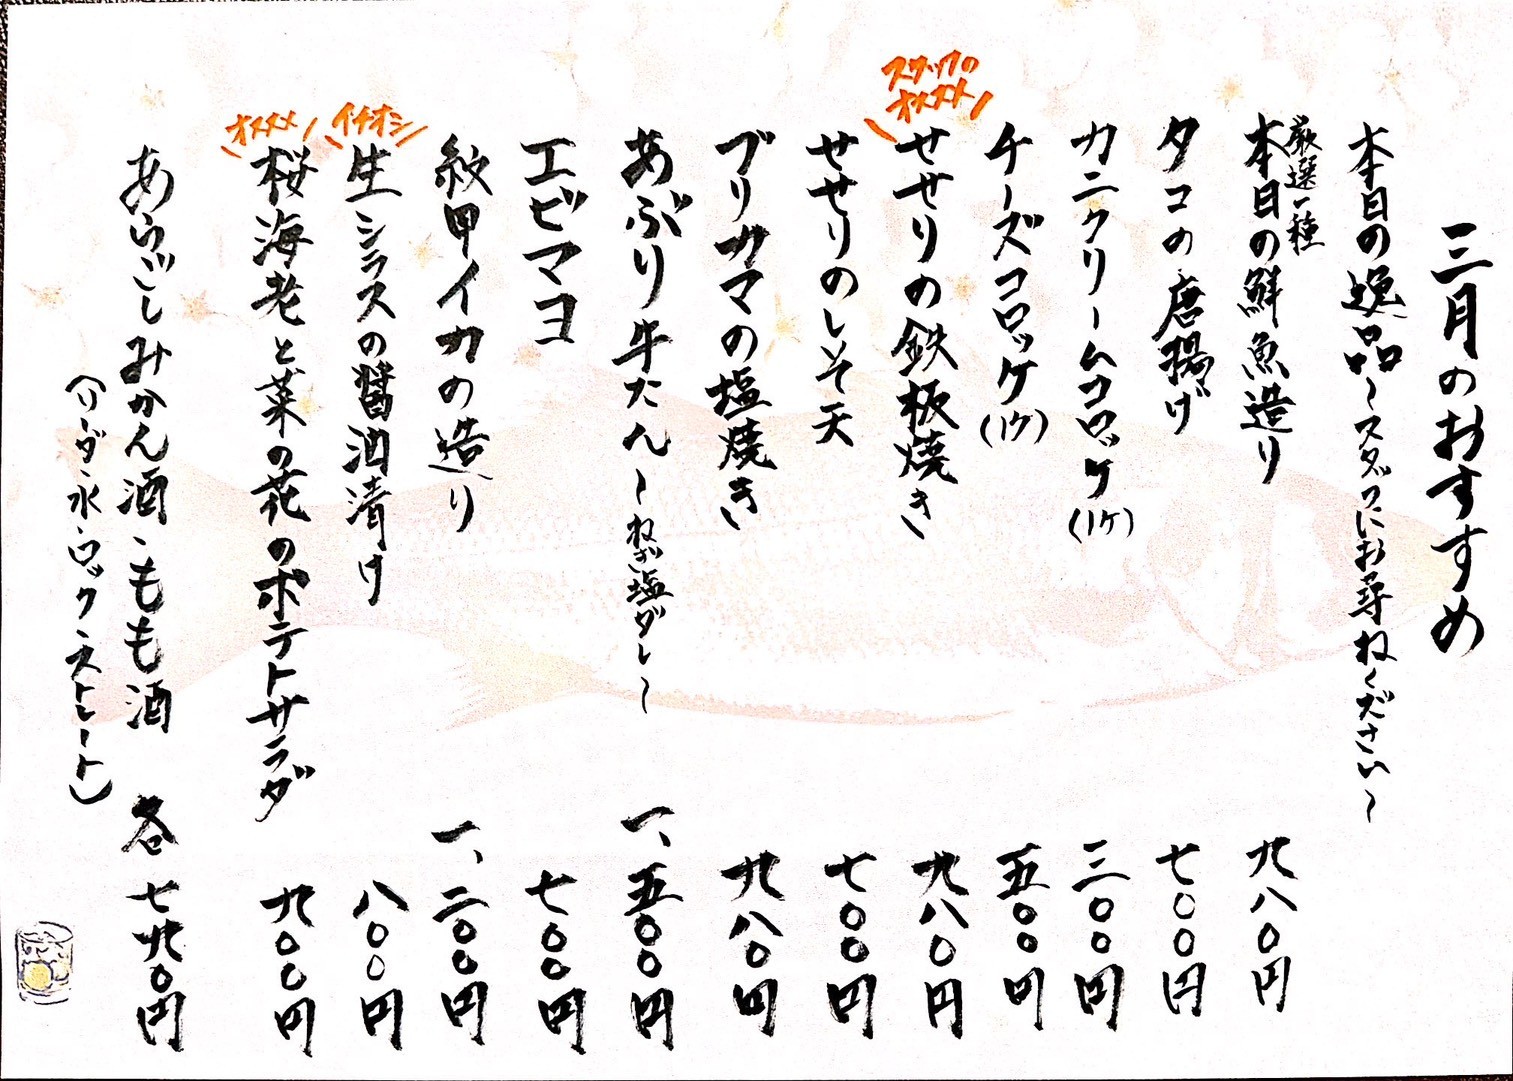 三月のおすすめ
本日の逸品〜スタッフにお尋ねください〜
厳選一種
本日の鮮魚造り 九八〇円
タコの唐揚げ 七〇〇円
カニクリームコロッケ(1ケ) 三〇〇円
チーズコロッケ(1ケ) 五〇〇円
スタッフの
オススメ
せせりの鉄板焼き 九八〇円
せせりのしそ天 七〇〇円
ブリカマの塩焼き 九八〇円
あぶり牛たん〜ねぎ塩ダレ〜 一、五〇〇円
エビマヨ 七〇〇円
紋甲イカの造り 一、二〇〇円
イチオシ
生シラスの醤油漬け 八〇〇円
オススメ
桜海老と菜の花のポテトサラダ 九〇〇円
あらごしみかん酒、もも酒 各七九〇円
(ソーダ、水、ロック、ストレート)